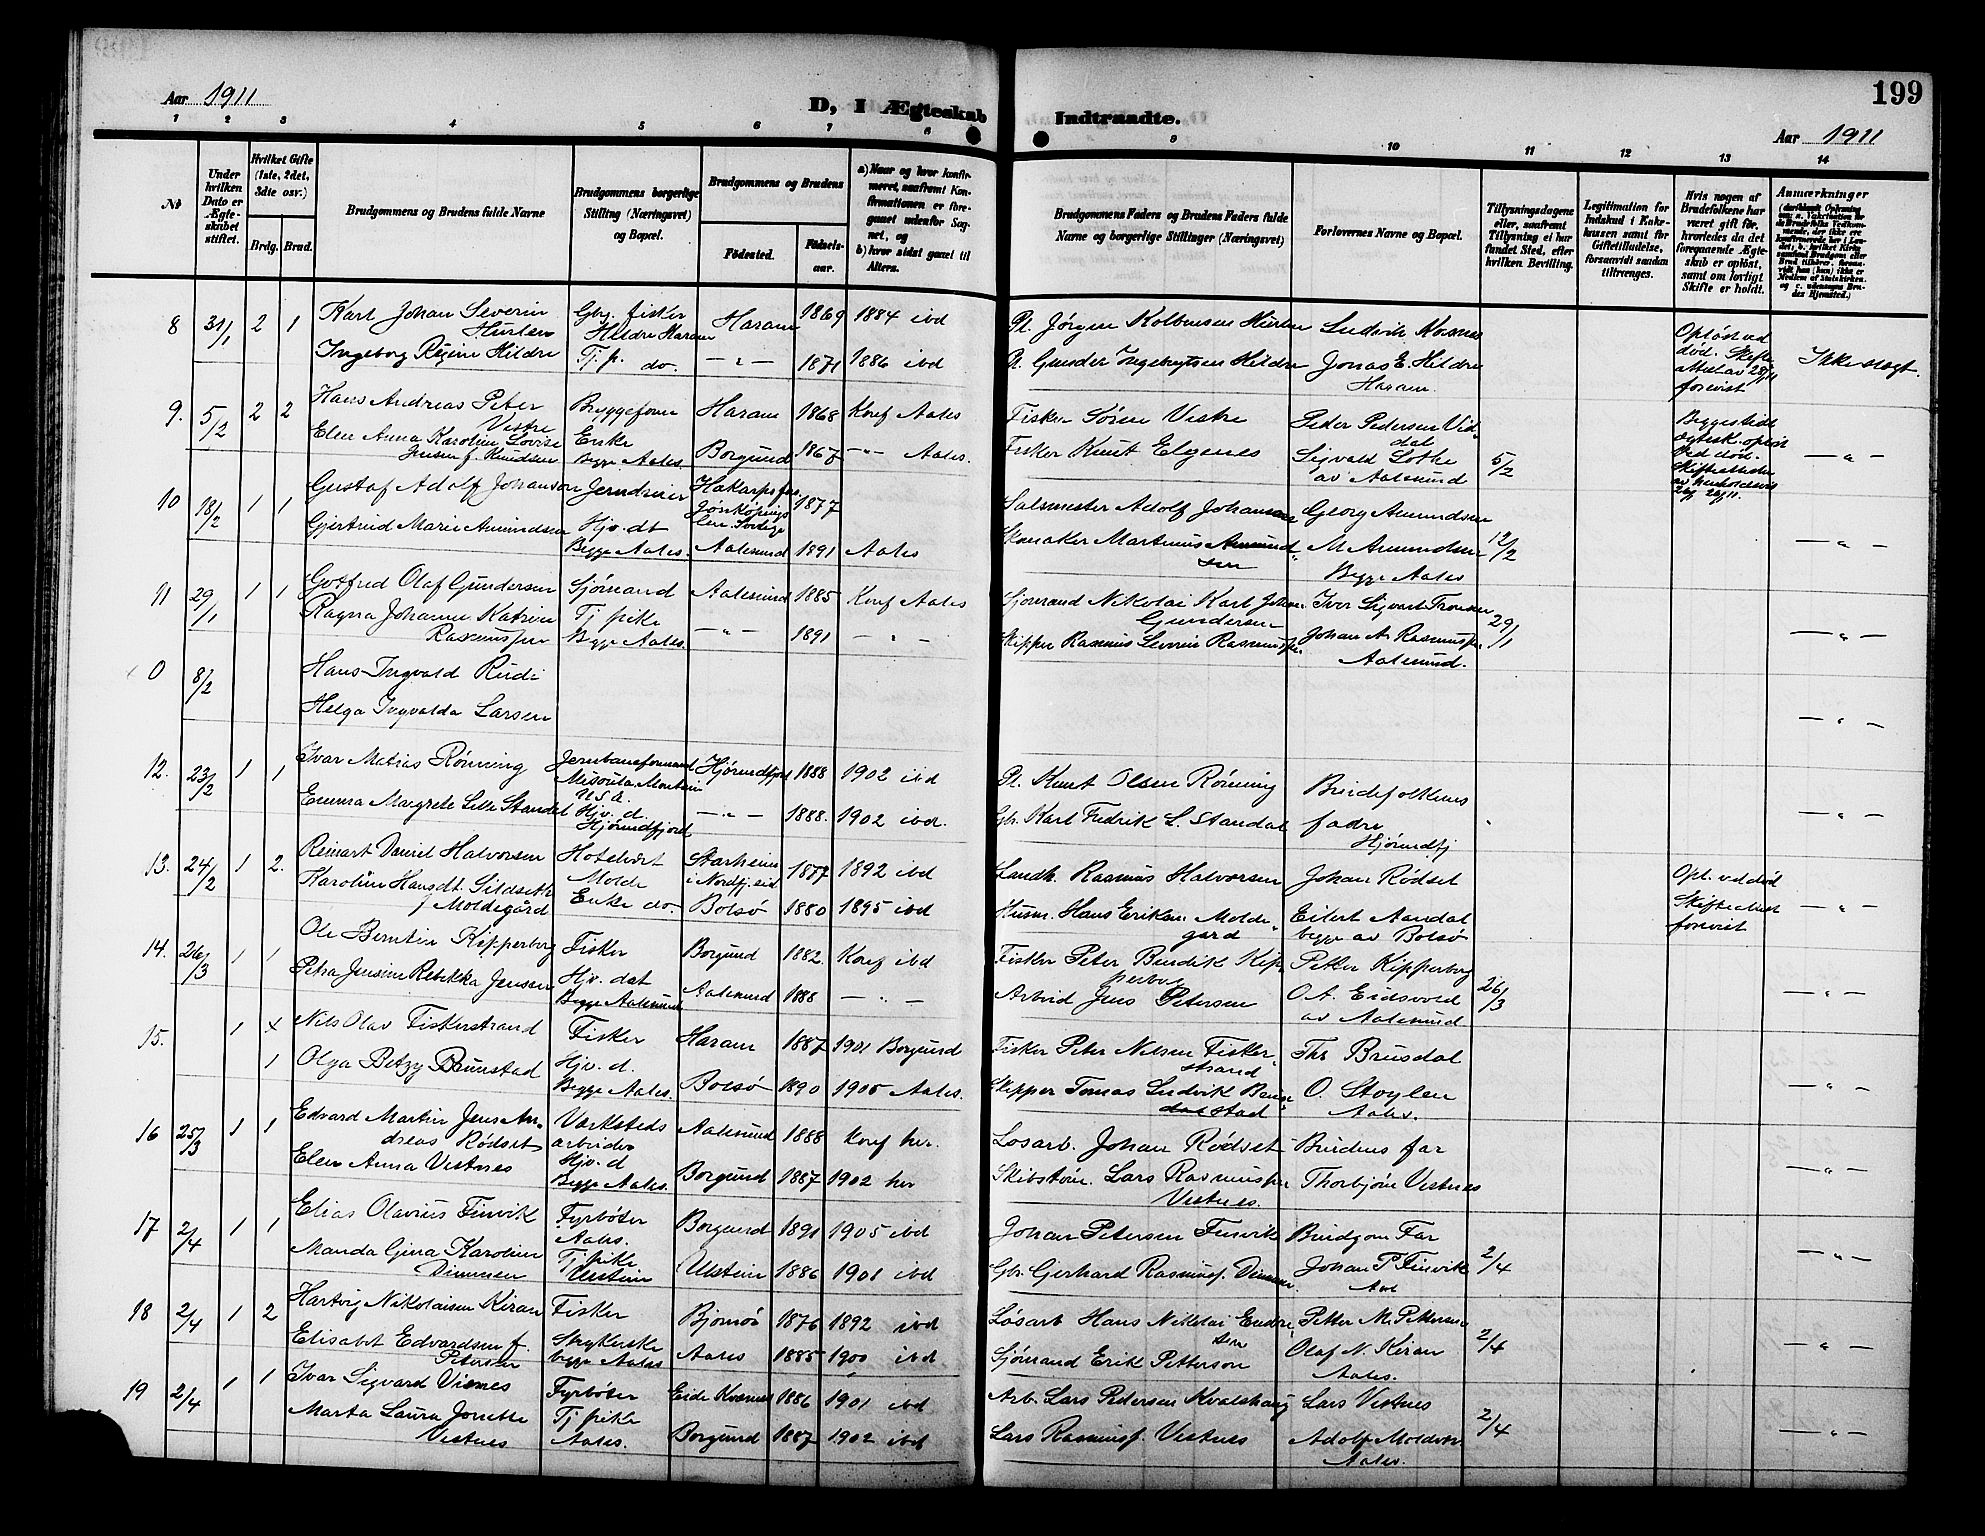 199
Aar 1911
D, I Ægteskab Indtraadte.
Aar 1911
1 2 3 4 5 6 7 8 9 10 11 12 13 14
No
Under hvilken Dato er Ægteskabet stiftet.
Hvilket Gifte (1ste, 2det, 3die osv.)
Brdg. Brud.
Brudgommens og Brudens fulde Navne
Brudgommens borgerlige Stilling (Næringsvei) og Bopæl.
Brudgommens og Brudens
Fødested.
Fødselsaar.
a) Naar og hvor konfirmeret, saafremt Konfirmationen er foregaaet udenfor Sognet, og
b) hvor sidst gaaet til Alters.
Brudgommens Faders og Brudens Faders fulde Navne og borgerlige Stillinger (Næringsvei)
Forlovernes Navne og Bopæl.
Tillysningsdagene eller, saafremt Tillysning ei har fundet Sted, efter hvilken Bevilling.
Legitimation for Indskud i Enkekassen samt for Giftetilladelse, forsaavidt saadan tiltrænges.
Hvis nogen af Brudefolkene har været gift før, hvorledes da det foregaaende Ægteskab er opløst, samt om lovligt Skifte er holdt.
Anmærkninger
8 31/1 2 1 Karl Johan Severin Gbr. fisker Haram 1869 1884 ibd Pl. Jørgen Kolbensen Ludvik Opløst ved
Hildre Haram død. Skifte
Ingeborg Regine Hildre Tj. p. do. — " — 1871 1886 ibd Pl. Gunder Ingebrigtsen Hildre Jonas E. Hildre attest av 28/11 Ikke slegt.
Haram. forevist
9. 5/2 2 2 Hans Andreas Peter Bryggeform Haram 1868 Konf Aales Fisker Søren Vestre Peder Pedersen Begges sidste
Vestre Enke egtesk. opløst
Elen Anna Karoline Lovise Borgund 1867 — " — Aales. Fisker Knut Elgenes Sigvald Lothe 5/2 ved død. — " —
Jensen f. Knudsen Begge Aales. av Aalesund
10 18/2 1 1 Gustaf Adolf Johanson Jerndreier 1877 Adolf Johansson Georg Amundsen
Jönköpings
Gjertrud Marie Amundsen Hjv. dt Aalesund 1891 Aales Skomaker Martinus Amundsen M Amundsen 12/2 — " —
Begge Aales. Begge Aales
11 29/1 1 1 Gotfred Olaf Gundersen Sjømand Aalesund 1885 Konf Aales Sjømand Nikolai Karl Johan Gundersen Ivar Sigvart 29/1
Ragna Johanne Katrine Tj pike — " — 1891 — " — Skipper Rasmus Severin Rasmussen Johan A. Rasmussen — " —
Rasmussen Begge Aales. Aalesund.
0 8/2 Hans Ingvald Rudi
Helga Ingvalda Larsen — " —
12. 23/2 1 1 Ivar Matias Rønning Jernbaneformand Hjørundfjord 1888 1902 ibd Pl. Knut Olsen Rønning Brudefolkenes
Misoula Montana
U S A.
Emma Margrete Lille Standal Hjv. d. — " — 1888. 1902 ibd. Gbr. Karl Fredrik L. Standal fædre — " —
Hjørundfjord Hjørundfj
13. 24/2 1 2. Reinart Daniel Halvorsen Hotelvert Starheim 1877 1892 ibd Landh. Rasmus Halvorsen Johan Rødset Opl. ved død
Molde i Nordfj.eid
Karoline Hansdt. Sildseth Enke do. Bolsø 1880 1895 ibd Husm. Hans Eriksen Moldegard Eilert Aandal Skifteattest — " —
f Moldegård begge av Bolsø forevist
14. 26/3 1 1 Ole Berntin Kipperberg Fisker Borgund 1882. Konf ibd Fisker Peter Bendik Kipperberg Petter Kipperberg 26/3
Petra Jensine Rebekka Jensen Hjv. det Aalesund 1888 — " — Arbeid Jens Petersen O A. Eidsvold — " —
Begge Aalesund av Aalesund
15. 1 x Nils Olav Fiskerstrand Fisker Haram 1887 1901 Borgund Fisker Peter Nilsen Fiskerstrand Thr Brusdal
1 Olga Betzy Baunstad Hjv. d. Bolsø 1890 1905 Aales. Skipper Tomas Ludvik O. Støylen — " —
Begge Aales. Aales.
16 25/3 1 1 Edvard Martin Jens Andreas Rødset Verksteds arbeider Aalesund 1888 Konf her. Løsarb. Johan Rødset Brudens far
Elen Anna Vestnes Hjv. d Borgund 1887 1902 her Skibstøm. Lars Rasmussen Thorbjørn Vestnes — " —
Begge Aales. Vestnes.
17 2/4 1 1 Elias Olavius Finvik Fyrbøter Borgund 1891 1905 ibd Johan Petersen Finvik Brudgom Far
Aales.
Manda Gina Karoline Tj pike Ulstein 1886 1901 ibd Gbr. Gerhard Rasmuss. Dimmen Johan P Finvik 2/4 — " —
Dimmen Ulstein Aal
18 2/4 1 2 Hartvig Nikolaisen Kiran Fisker Bjørnør 1876 1892 ibd Løsarb Hans Nikolai Endresen Petter M. Pettersen
Elisabet Edvardsen f. Aales 1885 1900 ibd Sjømand Erik Petterson Olaf N. Kiran 2/4 — " —
Petersen begge Aales Aales.
19 2/4 1 1 Ivar Sigvard Visnes Fyrbøter Eide Kvernes 1886 1901 ibd Arb. Lars Pedersen Kvalshaug Lars Vestnes
Marta Laura Jonette Tj pike Borgund 1887 1902 ibd Lars Rasmussf. Vestnes Adolf Moldver 2/4 — " —
Vestnes Aales. Aales.